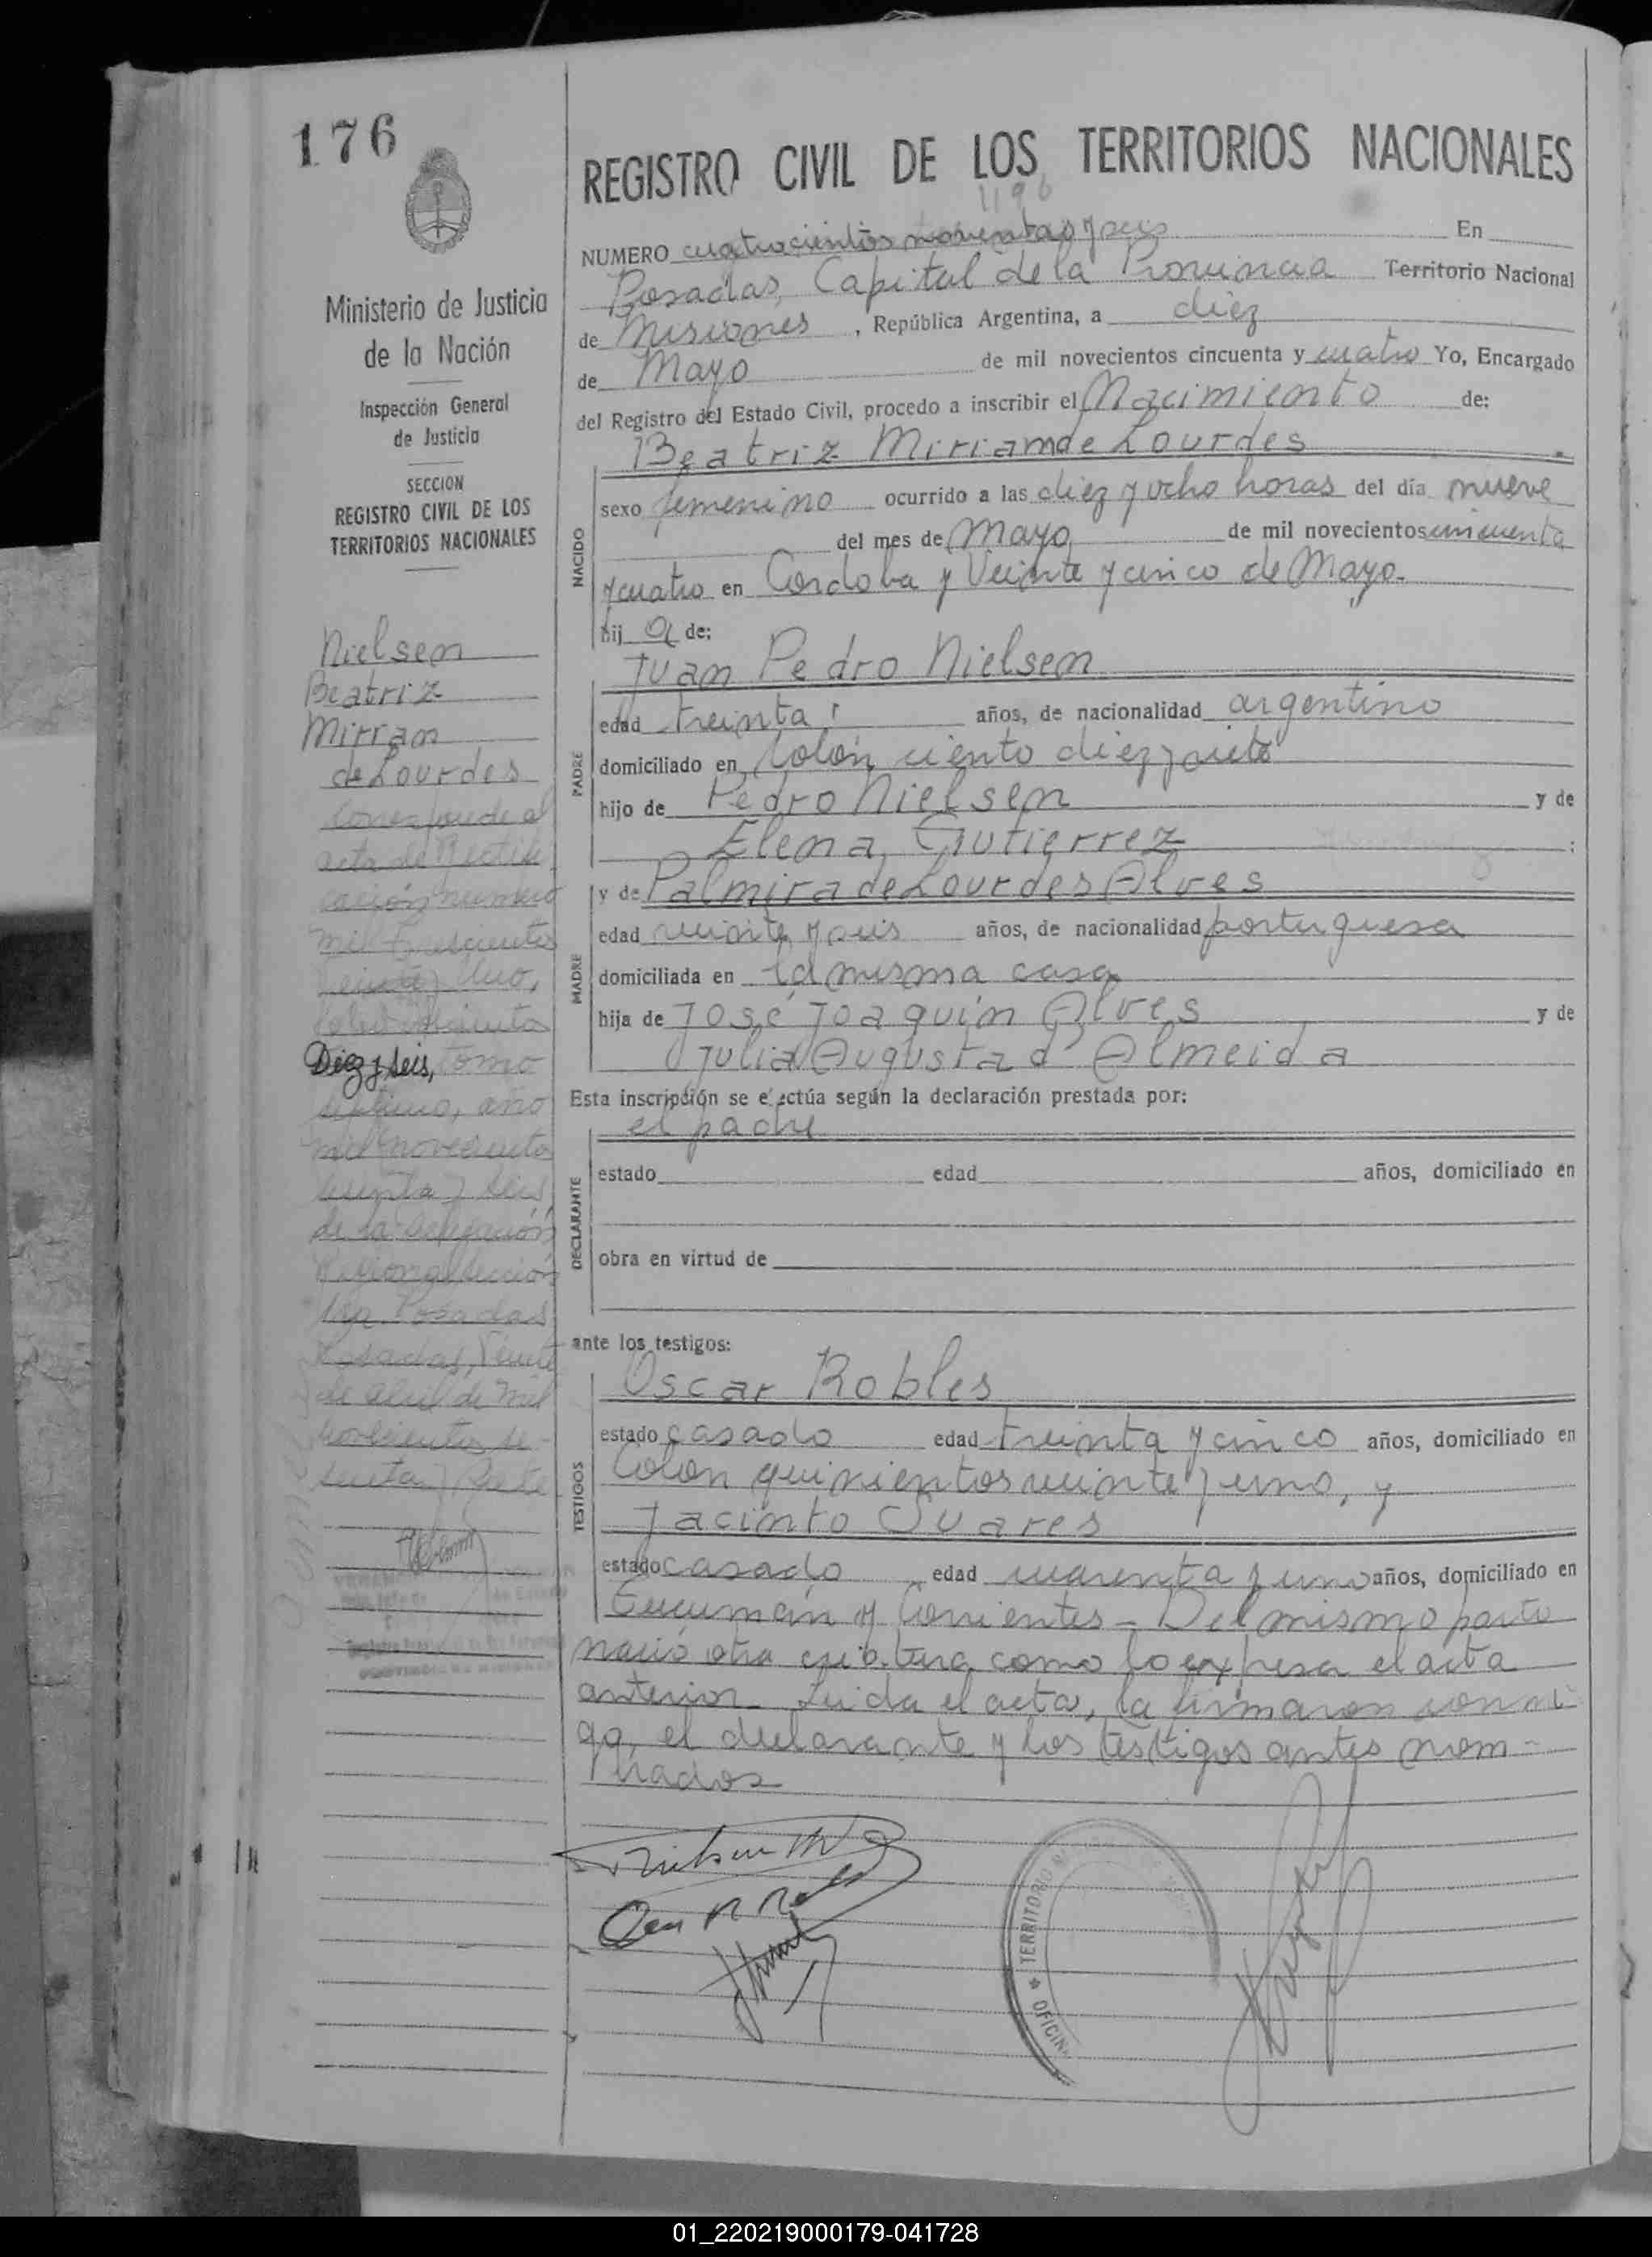 176
Ministerio de Justicia
de la Nación
Inspección General
de Justicia
SECCION
REGISTRO CIVIL DE LOS
TERRITORIOS NACIONALES
Nielsen
Beatriz
Mirian
de Lourdes
Corresponde al
acta de Rectifi
cación número
mil trescientos
veinte y uno,
folio doscientos
Diez y seis, tomo
septimo, año
mil novecientos
sesenta y seis
de la Delegación
Regional Sección
1ra Posadas
Posadas, veinte
de abril de mil
novecientos se-
senta y siete
REGISTRO CIVIL DE LOS TERRITORIOS NACIONALES
NUMERO cuatrocientos noventa y seis En
Posadas, Capital de la Provincia Territorio Nacional
de Misiones, República Argentina, a diez
de Mayo de mil novecientos cincuenta y cuatro Yo, Encargado
del Registro del Estado Civil, procedo a inscribir el Nacimiento de:
Beatriz Miriam de Lourdes
NACIDO
sexo femenino ocurrido a las diez y ocho horas del día nueve
del mes de Mayo de mil novecientos cincuenta
y cuatro en Cordoba y Veinte y cinco de Mayo.
hij a de:
Juan Pedro Nielsen
PADRE
edad treinta años, de nacionalidad argentino
domiciliado en Colón ciento diez y siete
hijo de Pedro Nielsen y de
Elena Gutierrez ;
y de Palmira de Lourdes Alves
MADRE
edad veinte y seis años, de nacionalidad portuguesa
domiciliada en la misma casa
hija de José Joaquín Alves y de
Julia Augusta d'Almeida
Esta inscripción se efectúa según la declaración prestada por:
el padre
DECLARANTE
estado edad años, domiciliado en
obra en virtud de
ante los testigos:
Oscar Robles
TESTIGOS
estado casado edad treinta y cinco años, domiciliado en
Colon quinientos veinte y uno, y
Jacinto Suares
estado casado edad cuarenta y uno años, domiciliado en
Tucumán y Corrientes - Del mismo parto
nació otra criatura como lo expresa el acta
anterior. Leida el acta, la firmaron conmi-
go, el declarante y los testigos antes nom-
brados
TERRITORIO
OFICIN
01_220219000179-041728